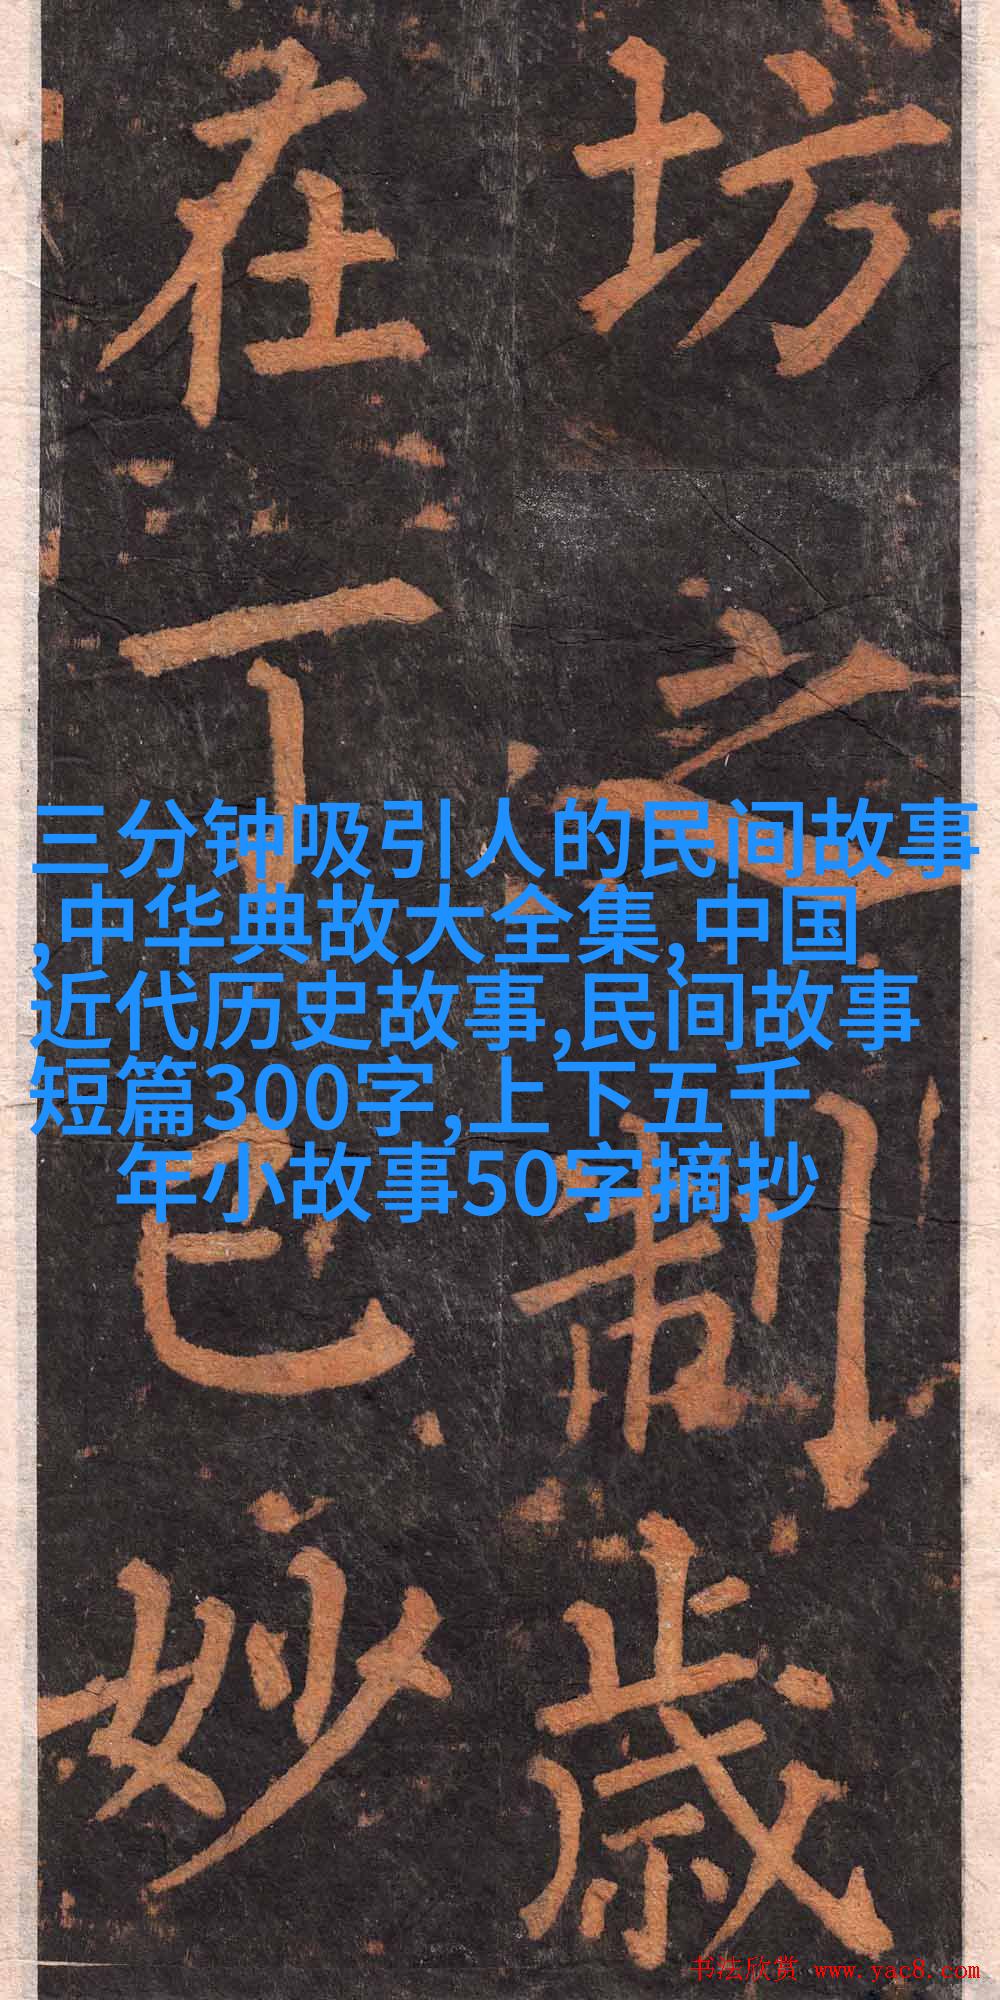 坊之制歲
在丁巳妙
三分钟吸引人的民间故事
,中华典故大全集,中国
近代历史故事,民间故事
短篇300字,上下五千
年小故事50字摘抄
书法欣赏 www.yac8.com